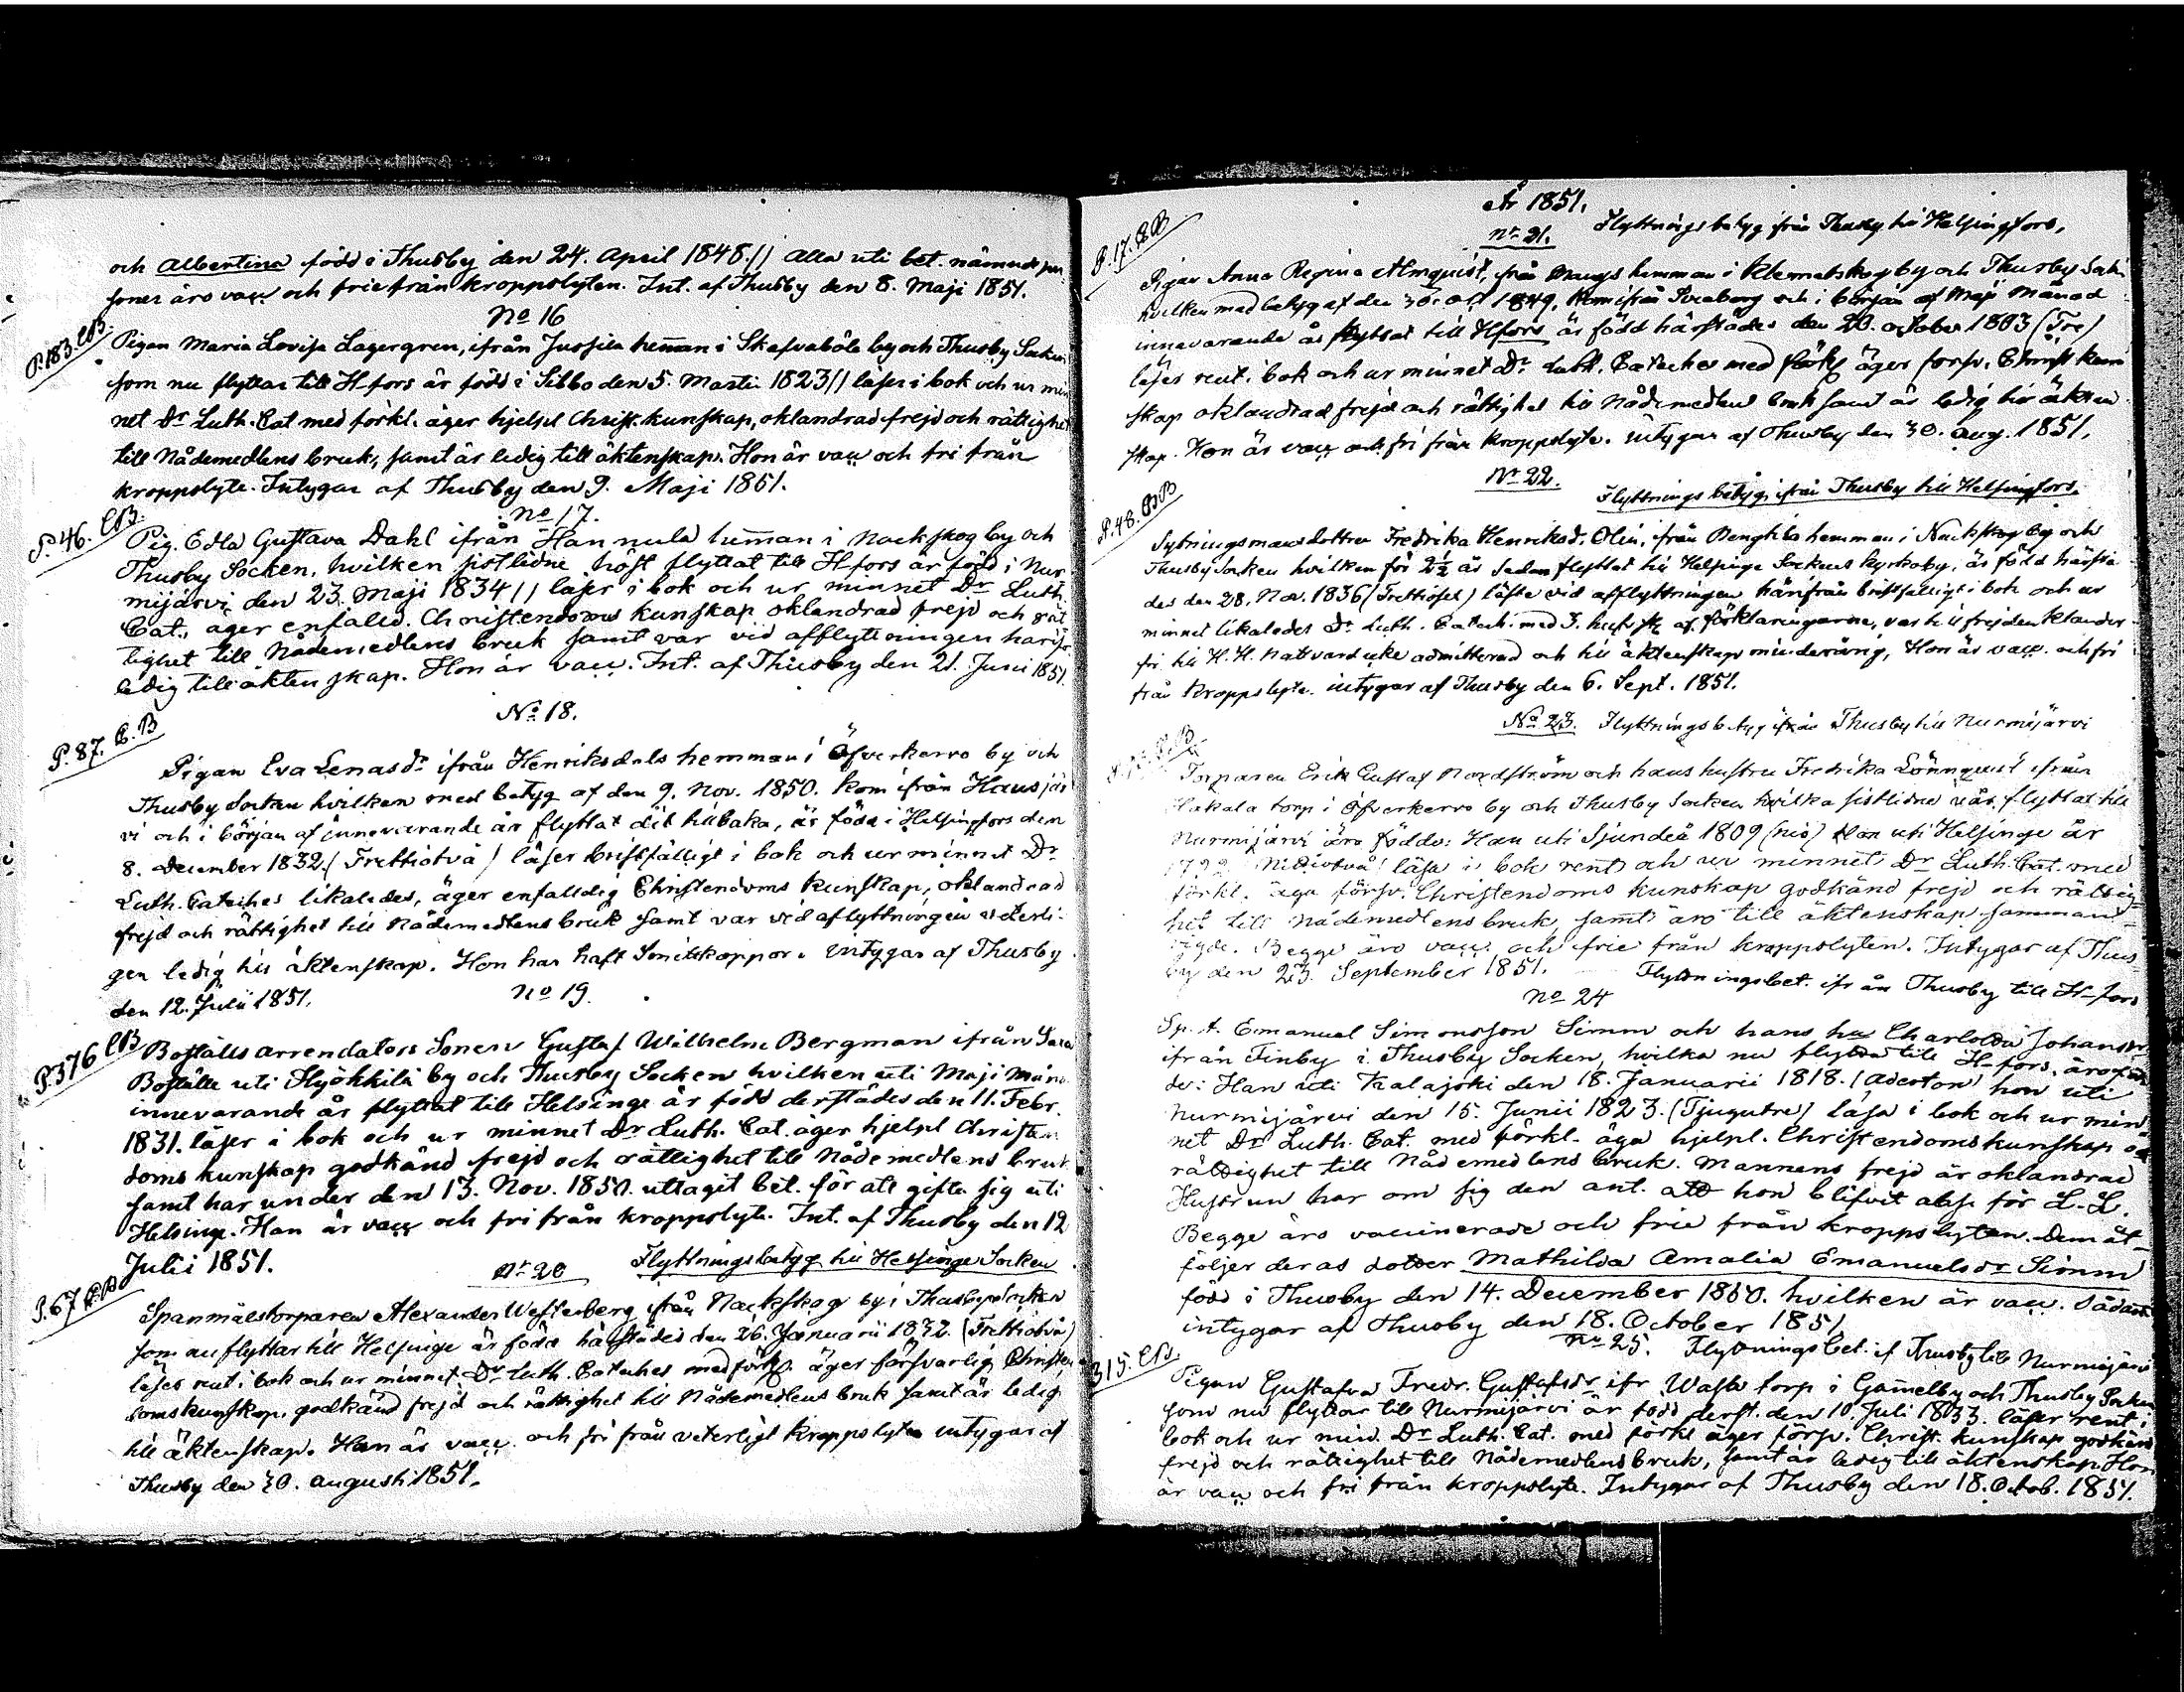 och Albertina född i Thusby den 24. April 1848.// Alla uti bet. nämnde per
soner äro vacc och frie från kroppslyten. Int. af Thusby den 8. Maji 1851.
No 16
P.183. CB.
Pigan Maria Lovisa Lagergren, ifrån Jussila hem̄an i Skafvaböle by och Thusby Socken
som nu flyttar till H-fors är född i Sibbo den 5. Martii 1823// läser i bok och ur min
net Dr Luth. Cat med förkl. äger hjelpl Christ. kunskap, oklandrad frejd och rättighet
till Nådemedlens bruk, samt är ledig till äktenskap. Hon är vacc och fri från
kroppslyte. Intygar af Thusby den 9. Maji 1851.
No 17.
P. 46. CB.
Pig. Edla Gustava Dahl ifrån Hannula hem̄an i Nackskog by och
Thusby Socken, hvilken sistlidne höst flyttat till H-fors är född i Nur
mijärvi den 23 Maji 1834 // läser i bok och ur minnet Dr Luth.
Cat., äger enfaled. Christendoms kunskap oklandrad frejd och rät
tighet till Nådemedlens bruk samt var vid afflyttningen härifr.
ledig till äktenskap. Hon är vacc. Int. af Thusby den 21. Juni 1851.
No 18.
P. 87. C. B
Pigan Eva Lenasdr ifrån Henriksdals hemman i Öfverkervo by och
Thusby Socken hvilken med betyg af den 9. Nov. 1850. kom ifrån Hausjär
vi och i början af innevarande år flyttat dit tillbaka, är född i Helsingfors den
8. December 1832. (Trettiotvå) läser bristfälligt i bok och ur minnet Dr
Luth. Cateches likaledes, äger enfalldig Christendoms kunskap, oklandrad
frejd och rättighet till Nådemedlens bruk samt var vid aflyttningen veterli-
gen ledig till äktenskap. Hon har haft Smittkoppor. intygar af Thusby
den 12. Julii 1851.
No 19.
P.376 CB
Boställs arrendators Sonen Gustaf Wilhelm Bergman ifrån
Boställe uti Hyökkilä by och Thusby Socken hvilken uti Maji mån.
innevarande år flyttat till Helsinge är född derstädes den 11. Febr.
1831. läser i bok och ur minnet Dr Luth. Cat. äger hjelpl Christen
doms kunskap godkänd frejd och rättighet till Nådemedlens bruk
samt har under den 13. Nov. 1850. uttagit bet. för att gifta sig uti
Helsinge. Han är vacc och fri från kroppslyte. Int. af Thusby den 12
Julii 1851.
No 20 Flyttningsbetyg till Helsinge Socken
P. 67
Spanmålstorparen Alexander Westerberg ifrån Nackskog by i Thusby Socken
som nu flyttar till Helsinge är född härstädes den 26. Januarii 1832. (Trettiotvå)
läser rent i bok och ur minnet Dr Luth. Cateches med förkl. äger försvarlig Christen
doms kunskap, godkänd frejd och rättighet till Nådemedlens bruk samt är ledig
till äktenskap. Han är vacc. och fri från veterligt kroppslyte intygar af
Thusby den 30. augusti 1851.
År 1851.
No 21. Flyttningsbetyg från Thusby till Helsingfors.
P. 17. CB
Pigan Anna Regina Almquist, från hemman i Klemetskog by och Thusby Sock.
hvilken med betyg af den 30. 1849, kom ifrån Sveaborg och i början af Maji Månad
innevarande år flyttat till H-fors är född härstädes den 20. october 1803 (Tre)
läser rent i bok och ur minnet Dr Luth. Cateches med förkl äger försv. Christ kun
skap oklandrad frejd och rättighet till Nådemedlens bruk samt är ledig till äkten
skap. Hon är vacc och fri från kroppslyte. intygar af Thusby den 30. Aug. 1851.
No 22.
Flyttningsbetyg ifrån Thusby till Helsingfors.
P. 48. CB
Sytningsmansdottren Fredrika Henriksd. Olin, ifrån hemman i Nackskog by och
Thusby Socken hvilken för 2½ år sedan flyttat till Helsinge Sockens kyrkoby, är född härstä
des den 28. Nov. 1836 (Trettiosex) läste vid afflyttningen härifrån bristfälligt i bok och ur
minnet likaledes Dr Luth. Catech. med 3. af förklaringarne, var till frejden klander
fri till H. H. Nattvard icke admitterad och till äktenskap minderårig, Hon är vacc. och fri
från kroppslyte. intygar af Thusby den 6. Sept. 1851.
No 23. Flyttningsbetyg ifrån Thusby till Nurmijärvi
Torparen Erik Gustaf Nordström och hans hustru Fredrika Lönnquist ifrån
Hakala torp i Öfverkervo by och Thusby Socken hvilka sistlidne vår flyttat till
Nurmijärvi äro födde: Han uti Sjundeå 1809 (nio) Hon uti Helsinge år
1792 (Nittiotvå) läsa i bok rent och ur minnet Dr Luth. Cat. med
förkl. äga försv. Christendoms kunskap godkänd frejd och rättig-
het till Nådemedlens bruk, samt äro till äktenskap samman
vigde. Begge äro vacc. och frie från kroppslyten. Intygar af Thus
by den 23. September 1851. Flyttningsbet. ifrån Thusby till H-fors
No 24
Sp. t. Emanuel Simonsson Simm och hans hu Charlotta Johansdr
ifrån Finby i Thusby Socken, hvilka nu flytta till H-fors, äro föd
de: Han uti Kalajoki den 18. Januarii 1818. (Aderton) hon uti
Nurmijärvi den 15. Junii 1823. (Tjugutre) läsa i bok och ur min
net Dr Luth. Cat. med förkl. äga hjelpl. Christendoms kunskap och
rättighet till Nådemedlens bruk. Mannens frejd är oklandrad
Hustrun har om sig den ant. att hon blifvit abs. för L. L.
Begge äro vaccinerade och frie från kroppslyten. Dem åt-
följer deras dotter Mathilda Amalia Emanuelsdr Simm
född i Thusby den 14. December 1850. hvilken är vacc. Sådant
intygar af Thusby den 18. October 1851
No 25. Flyttningsbet. if Thusby till Nurmijärvi
315. CB.
Pigan Gustafva Fredr. Gustafsdr ifr. Wasta torp i Gam̄elby och Thusby Socken
som nu flyttar till Nurmijärvi är född derst. den 10 Juli 1833. läser rent i
bok och ur min. Dr Luth. Cat. med förkl äger försv. Christ. kunskap godkänd
frejd och rättighet till Nådemedlens bruk, samt är ledig till äktenskap. Hon
är vacc och fri från kroppslyte. Intygar af Thusby den 18. Octob. 1851.